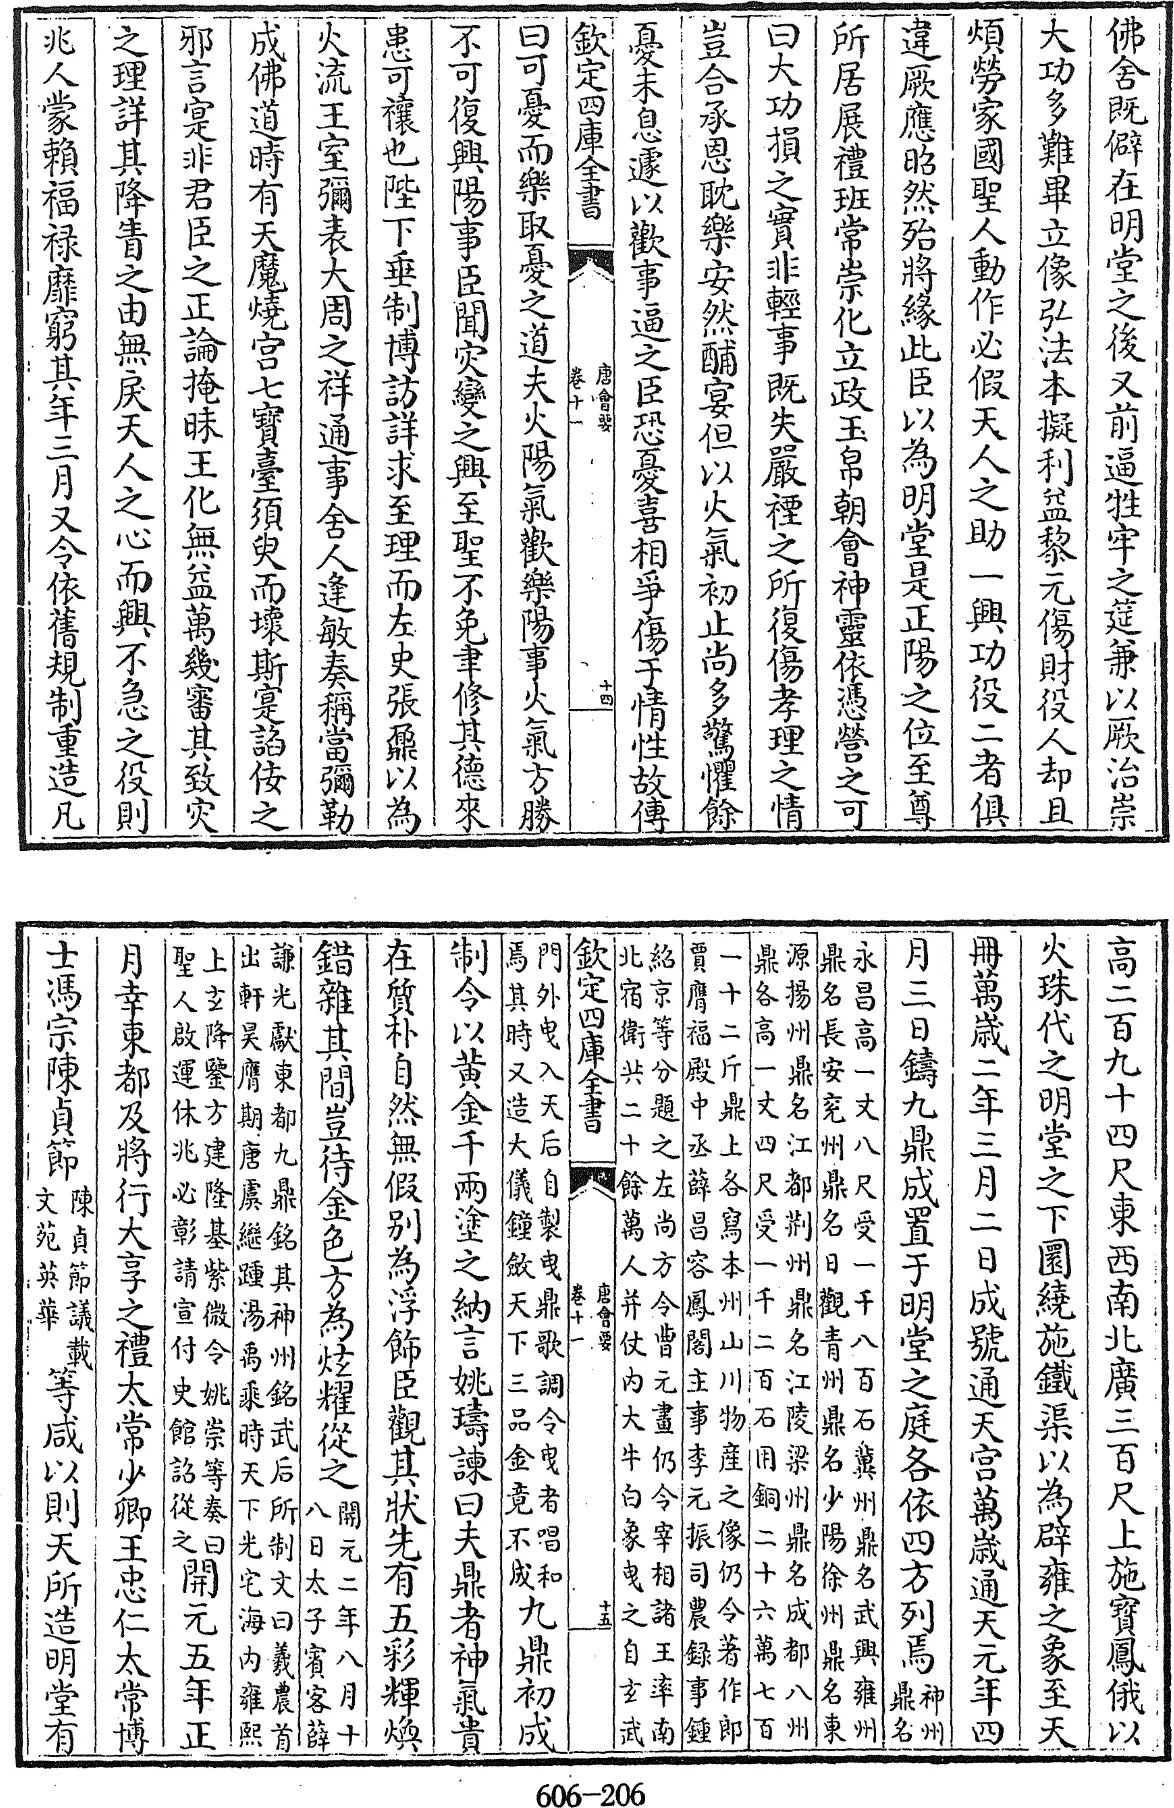 佛舍既僻在明堂之後又前逼牲牢之筵兼以厥治崇
大功多難畢立像弘法本擬利益黎元傷財役人却且
煩勞家國聖人動作必假天人之助一興功役二者俱
違厥應昭然殆將緣此臣以為明堂是正陽之位至尊
所居展禮班常崇化立政玉帛朝會神靈依憑營之可
曰大功損之實非輕事既失嚴禋之所復傷孝理之情
豈合承恩耽樂安然酺宴但以火氣初止尚多驚懼餘
憂未息遽以歡事逼之臣恐憂喜相爭傷于情性故傳
欽定四庫全書
唐會要
卷十一
十四
曰可憂而樂取憂之道夫火陽氣歡樂陽事火氣方勝
不可復興陽事臣聞灾變之興至聖不免聿修其德來
患可禳也陛下垂制博訪詳求至理而左史張鼐以為
火流王室彌表大周之祥通事舍人逢敏奏稱當彌勒
成佛道時有天魔燒宫七寶臺須臾而壞斯寔諂佞之
邪言寔非君臣之正論掩昧王化無益萬幾審其致灾
之理詳其降眚之由無戾天人之心而興不急之役則
兆人蒙賴福禄靡窮其年三月又令依舊規制重造凡
高二百九十四尺東西南北廣三百尺上施寶鳳俄以
火珠代之明堂之下圜繞施鐵渠以為辟雍之象至天
冊萬歲二年三月二日成號通天宫萬歲通天元年四
月三日鑄九鼎成置于明堂之庭各依四方列焉
神州
鼎名
永昌高一丈八尺受一千八百石冀州鼎名武興雍州
鼎名長安兖州鼎名日觀青州鼎名少陽徐州鼎名東
源揚州鼎名江都荆州鼎名江陵梁州鼎名成都八州
鼎各高一丈四尺受一千二百石用銅二十六萬七百
一十二斤鼎上各寫本州山川物産之像仍令著作郎
賈膺福殿中丞薛昌容鳳閣主事李元振司農録事鍾
紹京等分題之左尚方令曹元畫仍令宰相諸王率南
北宿衛共二十餘萬人并仗内大牛白象曳之自玄武
欽定四庫全書
唐會要
卷十一
十五
門外曳入天后自製曳鼎歌調令曳者唱和
焉其時又造大儀鐘斂天下三品金竟不成
九鼎初成
制令以黄金千兩塗之納言姚璹諫曰夫鼎者神氣貴
在質朴自然無假别為浮飾臣觀其狀先有五彩輝煥
錯雜其間豈待金色方為炫耀從之
開元二年八月十
八日太子賓客薛
謙光獻東都九鼎銘其神州銘武后所制文曰羲農首
出軒昊膺期唐虞繼踵湯禹乘時天下光宅海内雍熙
上玄降鑒方建隆基紫微令姚崇等奏曰
聖人啟運休兆必彰請宣付史館詔從之
開元五年正
月幸東都及將行大享之禮太常少卿王忠仁太常博
士馮宗陳貞節
陳貞節議載
文苑英華
等咸以則天所造明堂有
606-206